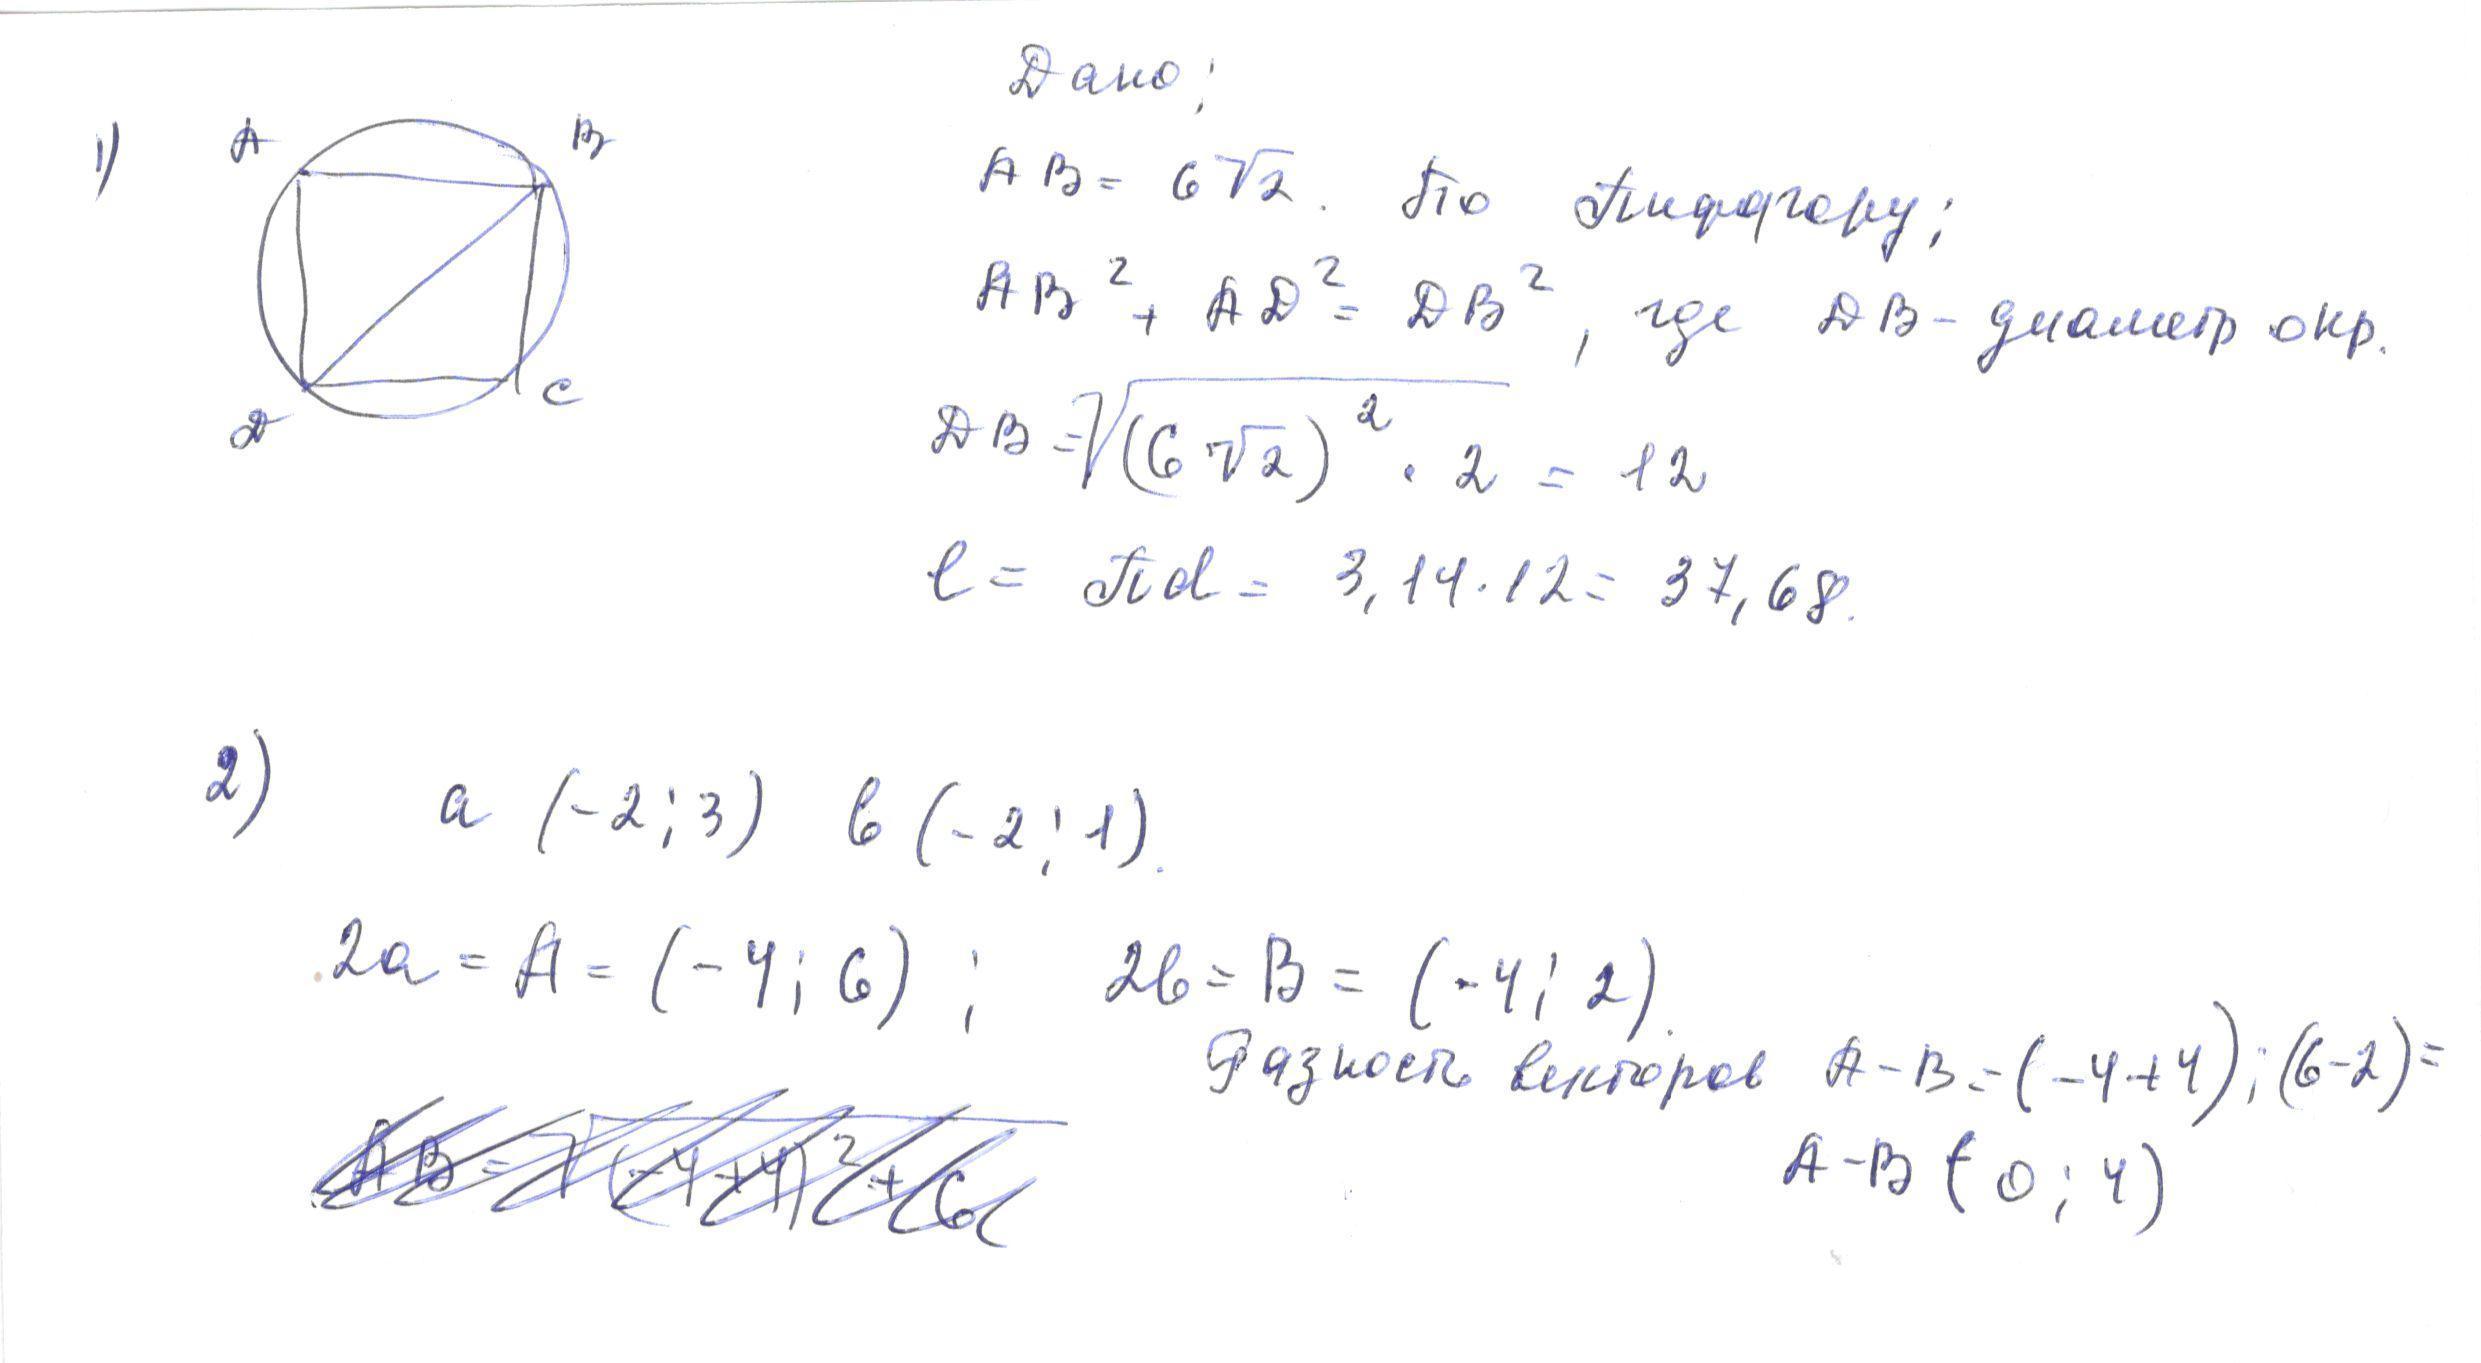 Дано;
1)
A
B
AB = 6√2. По Пифагору;
AB² + AD² = DB², где DB - диаметр окр.
C
D
DB = √(6√2)² · 2 = 12
l = πd = 3,14 · 12 = 37,68.
2)
a (-2; 3) в (-2; 1).
2a = A = (-4; 6); 2в = B = (-4; 2).
Разность векторов A-B = (-4+4); (6-2) =
AB = √(-4+4)² + (6
A-B (0; 4)